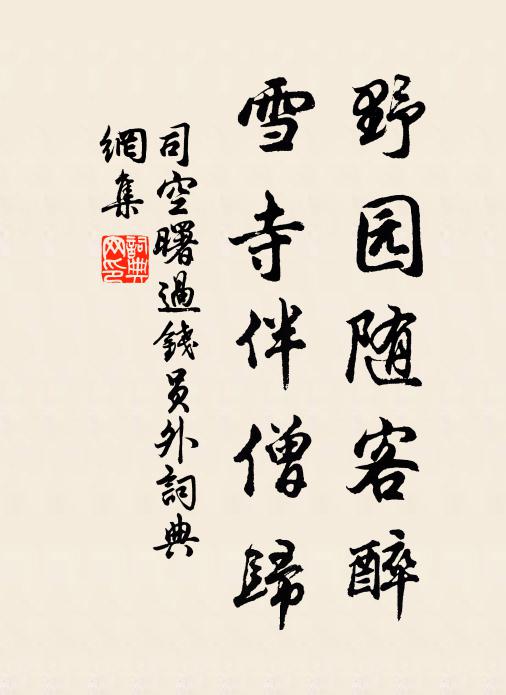 野园随客醉
雪寺伴僧歸
司空曙過錢員外詞典
網集
詞典網印